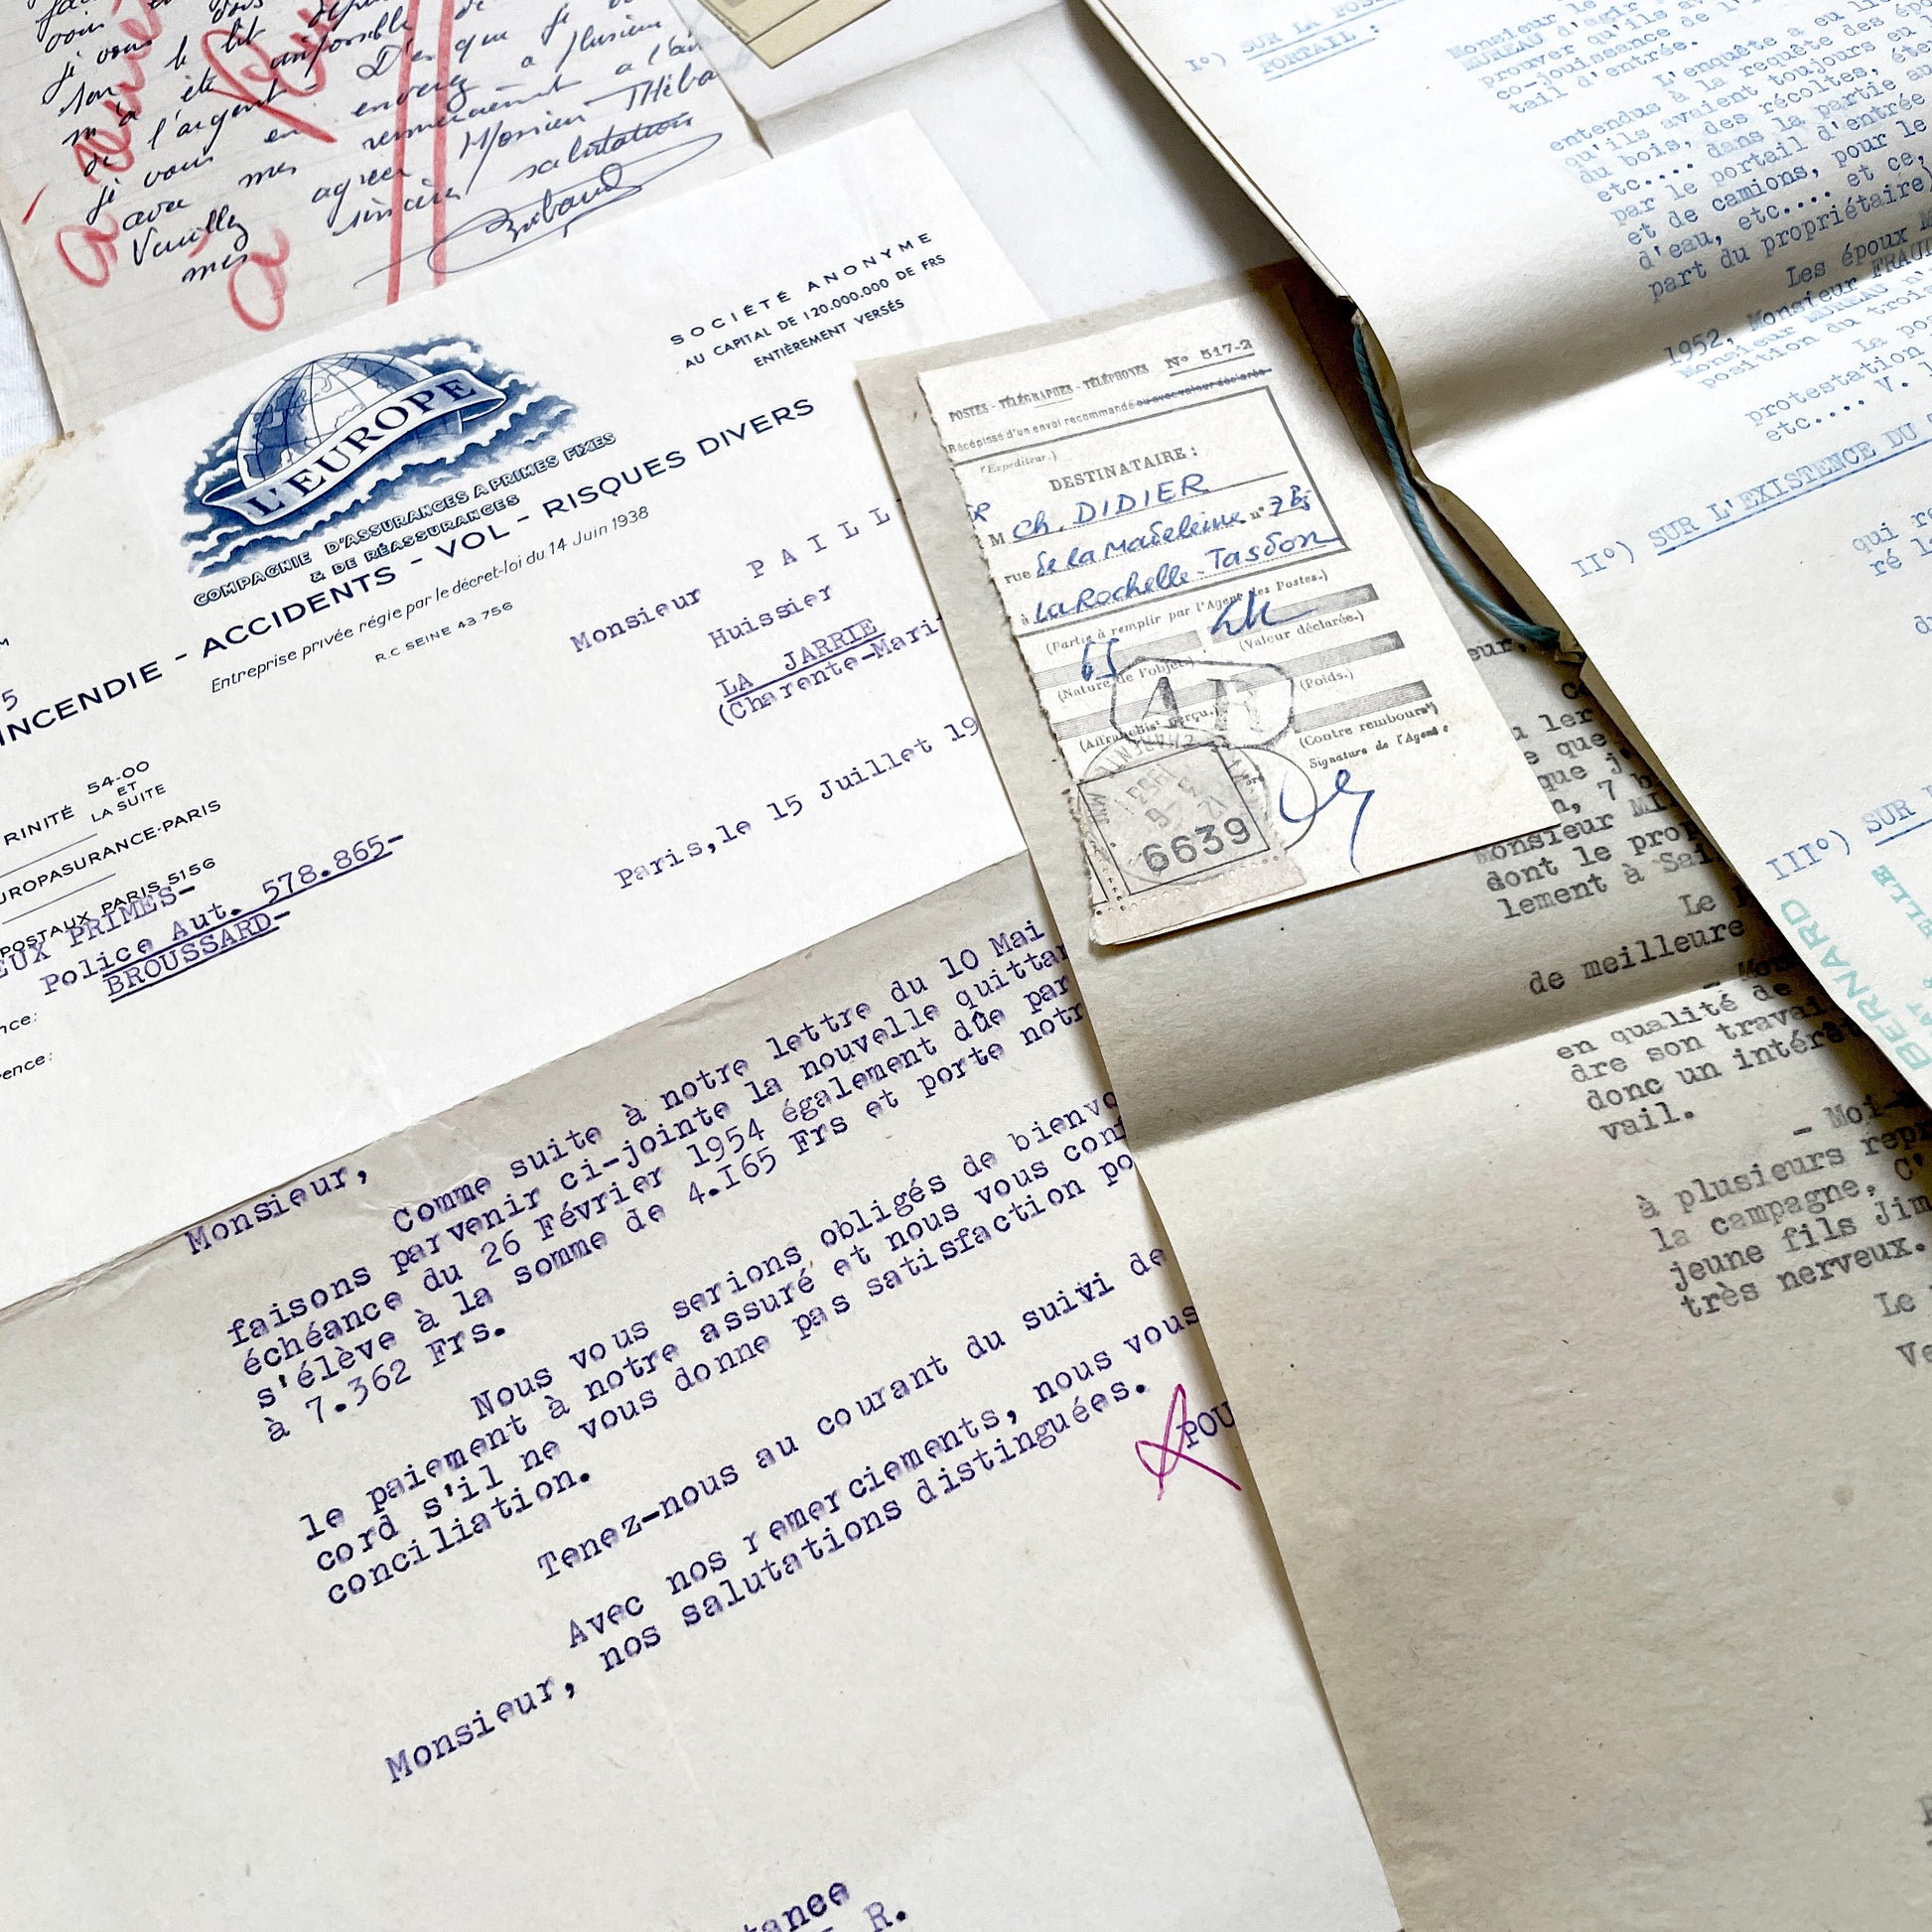 je vous
l'argent - Dès que je
je vous en enverez a plusieurs
avec mes remerciement a l'
Veuillez agréer Monsieur
mes sincères salutation
SOCIÉTÉ ANONYME
AU CAPITAL DE 120.000.000 DE FRS
ENTIÈREMENT VERSÉS
L'EUROPE
COMPAGNIE D'ASSURANCES A PRIMES FIXES
& DE RÉASSURANCES
INCENDIE - ACCIDENTS - VOL - RISQUES DIVERS
Entreprise privée régie par le décret-loi du 14 Juin 1938
R.C SEINE 43.756
RINITÉ 54-00
ET
LA SUITE
UROPASURANCE-PARIS
POSTAUX PARIS 5156
EUX PRIMES-
Police Aut. 578.865-
BROUSSARD-
nce:
rence:
Monsieur PAILL
Huissier
LA JARRIE
(Charente-Mari
Paris,le 15 Juillet 19
Monsieur,
Comme suite à notre lettre du 10 Mai
faisons parvenir ci-jointe la nouvelle quittan
échéance du 26 Février 1954 également dûe par
s'élève à la somme de 4.165 Frs et porte notr
à 7.362 Frs.
Nous vous serions obligés de bienvo
le paiement à notre assuré et nous vous conf
cord s'il ne vous donne pas satisfaction po
conciliation.
Tenez-nous au courant du suivi de
Avec nos remerciements, nous vous
Monsieur, nos salutations distinguées.
POU
tance
R.
POSTES - TÉLÉGRAPHES - TÉLÉPHONES No 517-2
Récépissé d'un envoi recommandé ou avec valeur déclarée
(Expéditeur.)
DESTINATAIRE :
M Ch. DIDIER
rue de la Madeleine n° 7 bis
à La Rochelle - Tasdon
(Partie à remplir par l'Agent des Postes.)
65
(Nature de l'objet.) (Valeur déclarée.)
AR
(Poids.)
(Affranchis' perçu.) (Contre rembours')
Signature de l'Agent
6639
I°) SUR LA
PORTAIL :
Monsieur le
MUREAU d'agir
prouver qu'ils av
co-jouissance de l'
tail d'entrée.
L'enquête a eu lie
entendus à la requête des épo
qu'ils avaient toujours eu
du bois, des récoltes, éte
etc.... dans la partie au
par le portail d'entrée
et de camions, pour le
d'eau, etc.... et ce,
part du propriétaire)
Les époux M
1952, Monsieur FRAU
Monsieur MUREAU n'
position du troi
La po
protestation
etc.... V. l
II°) SUR L'EXISTENCE DU
qui re
ré l
III°) SUR
BERNARD
eur,
u 1er
e que
que j
n, 7 b
Monsieur MI
dont le prop
lement à Sai
Le
de meilleure
en qualité de
dre son travai
donc un intérêt
vail.
- Moi-
à plusieurs repr
la campagne, C'
jeune fils Jim
très nerveux.
Le
Ve